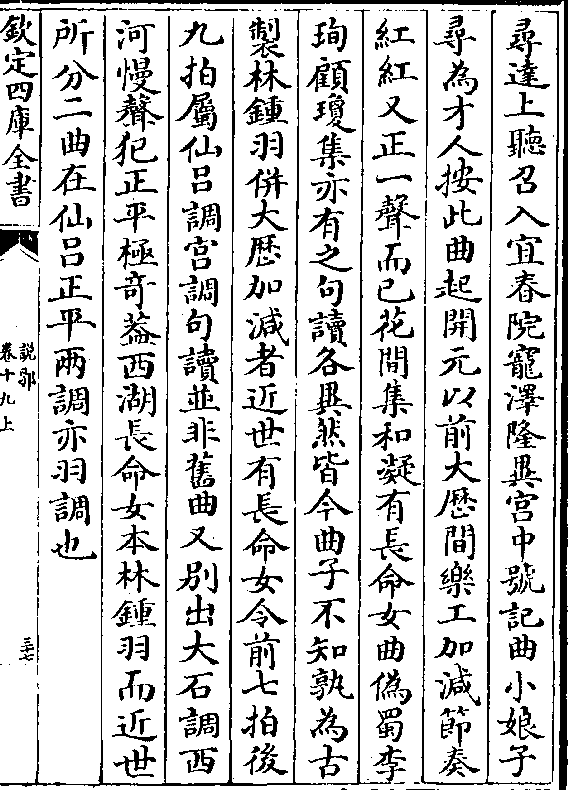 尋達上聽召入宜春院寵澤隆異宮中號記曲小娘子
尋為才人按此曲起開元以前大歴間樂工加減節奏
紅紅又正一聲而已花間集和凝有長命女曲偽蜀李
珣顧瓊集亦有之句讀各異然皆今曲子不知孰為古
製林鍾羽併大歴加減者近世有長命女令前七拍後
九拍屬仙呂調宮調句讀並非舊曲又别出大石調西
河慢聲犯正平極竒葢西湖長命女本林鍾羽而近世
所分二曲在仙呂正平兩調亦羽調也
欽定四庫全書
說郛
卷十九上
三十七